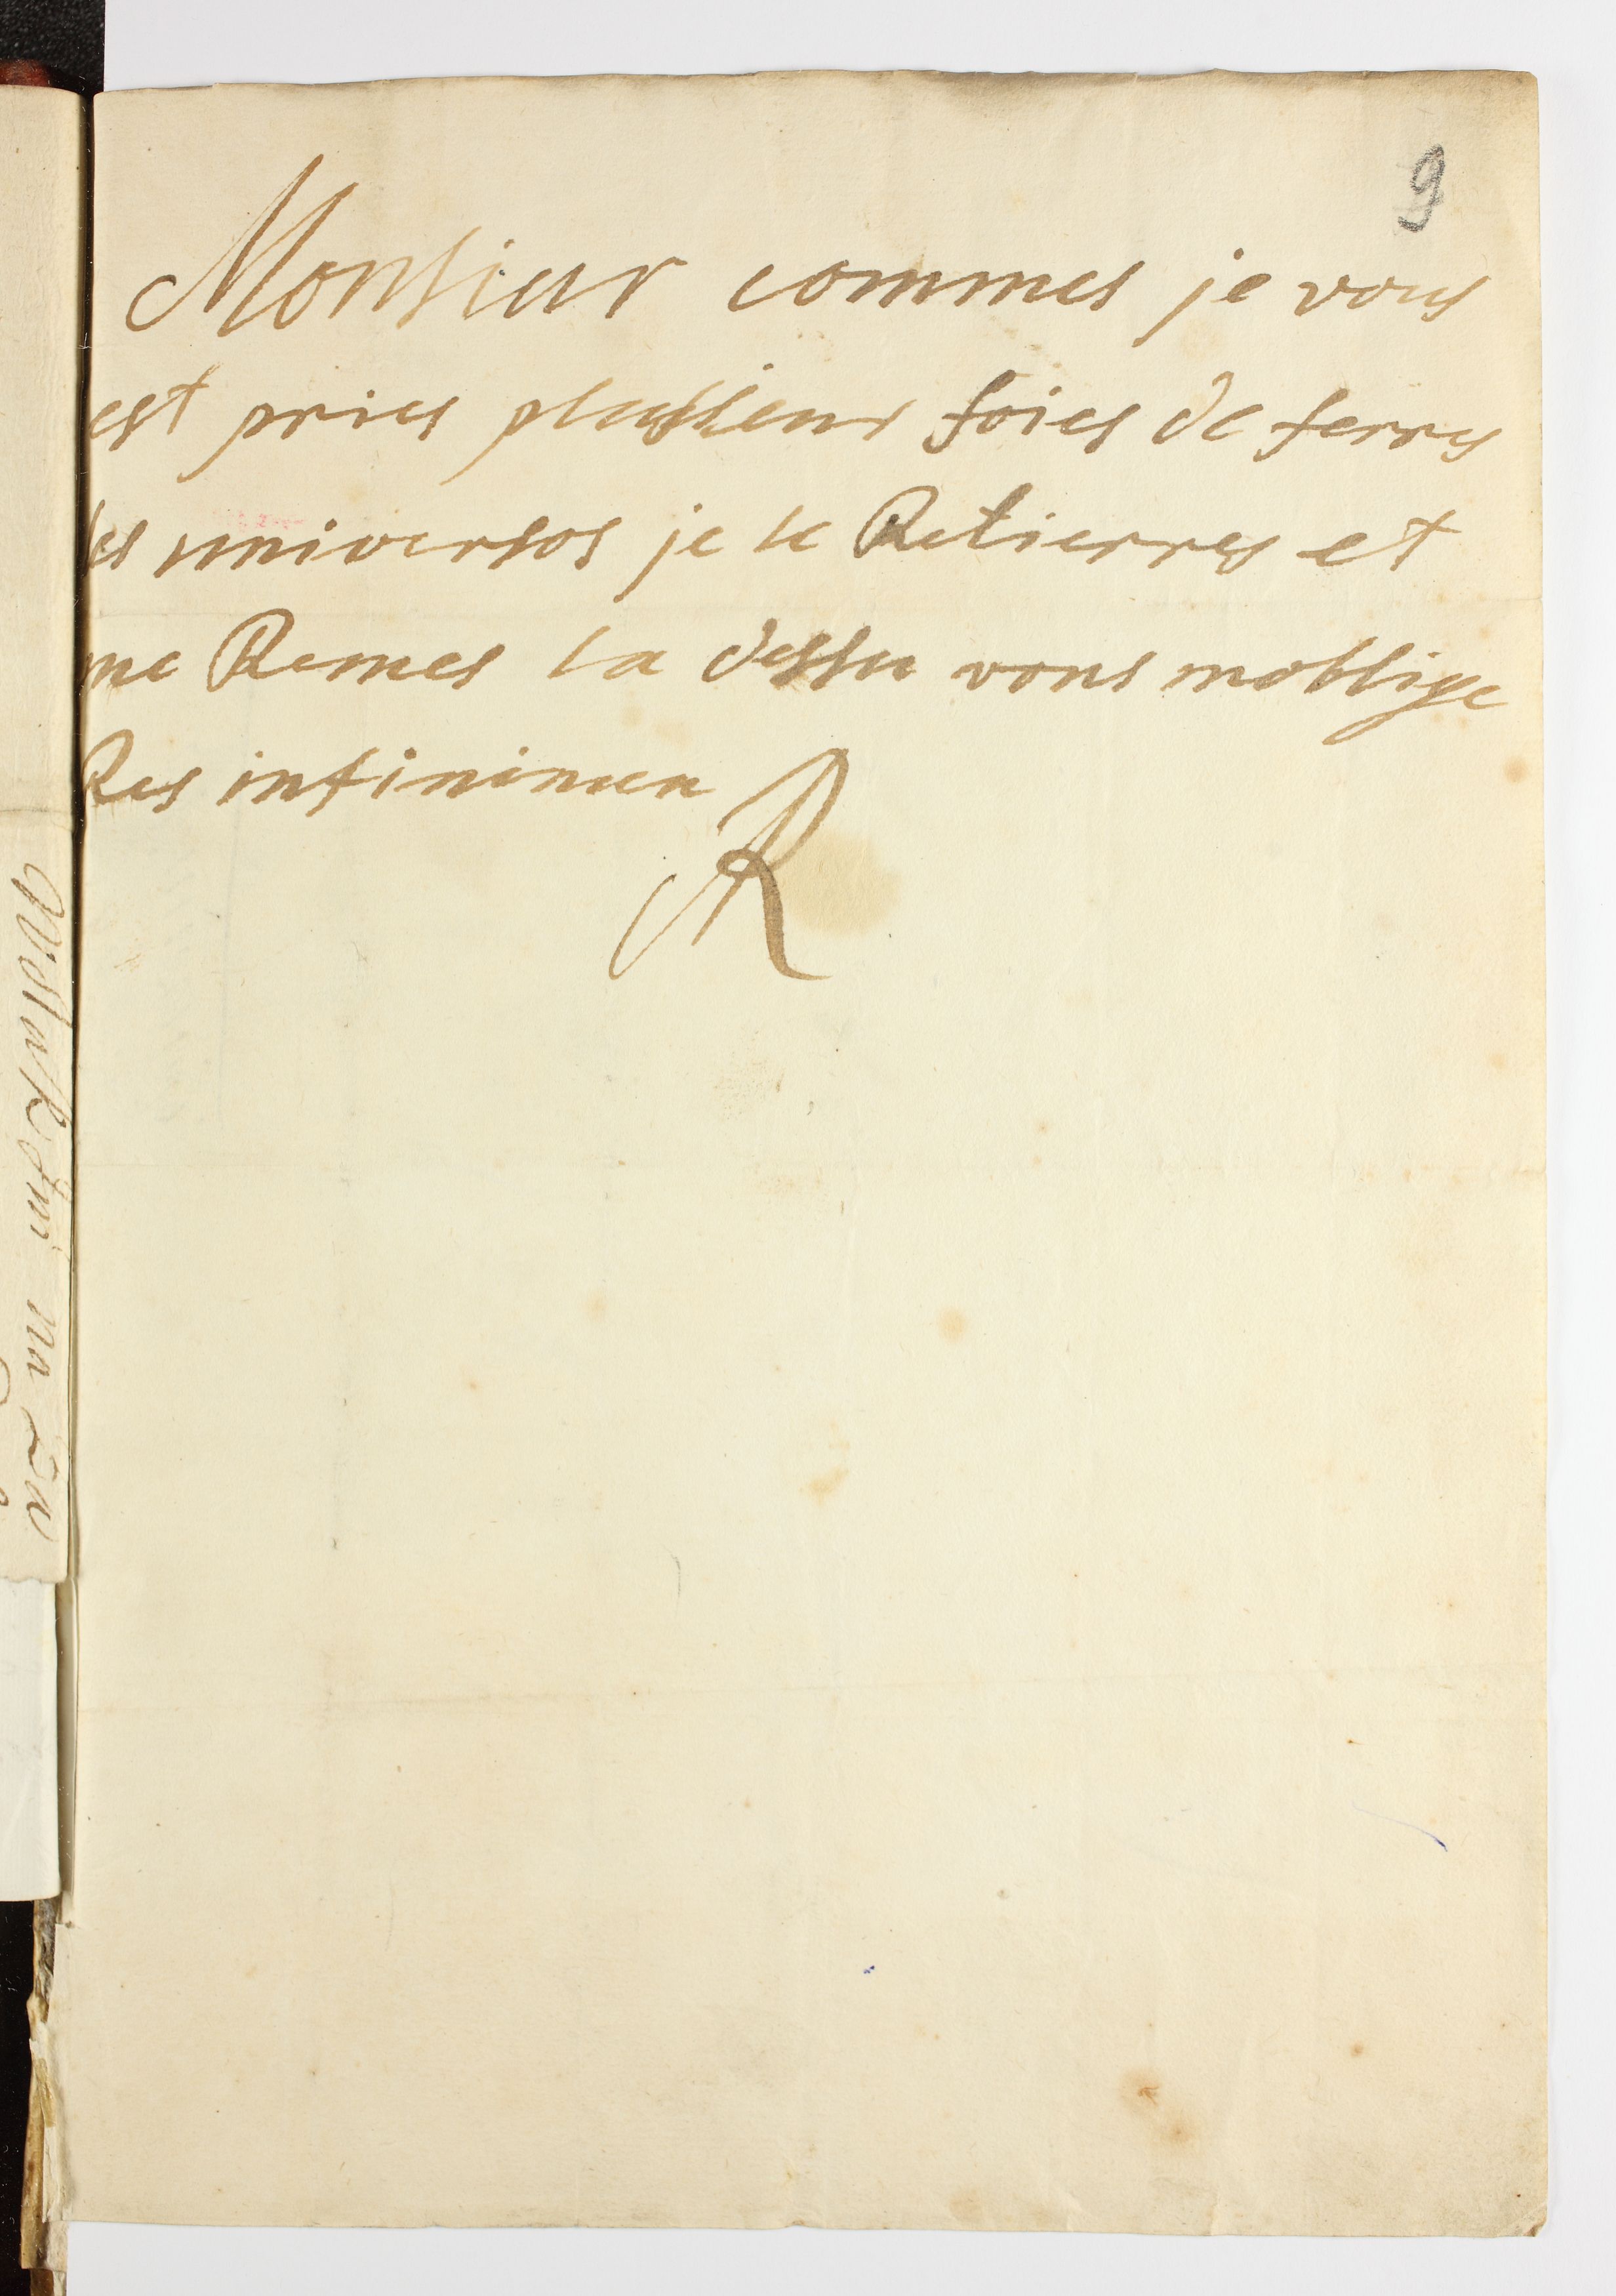 9
Monsieur commes je vous
est pries plusieur foies de ferres
les universos je le Retierres et
me Remes la dessu vous moblige
Res infinimen
R